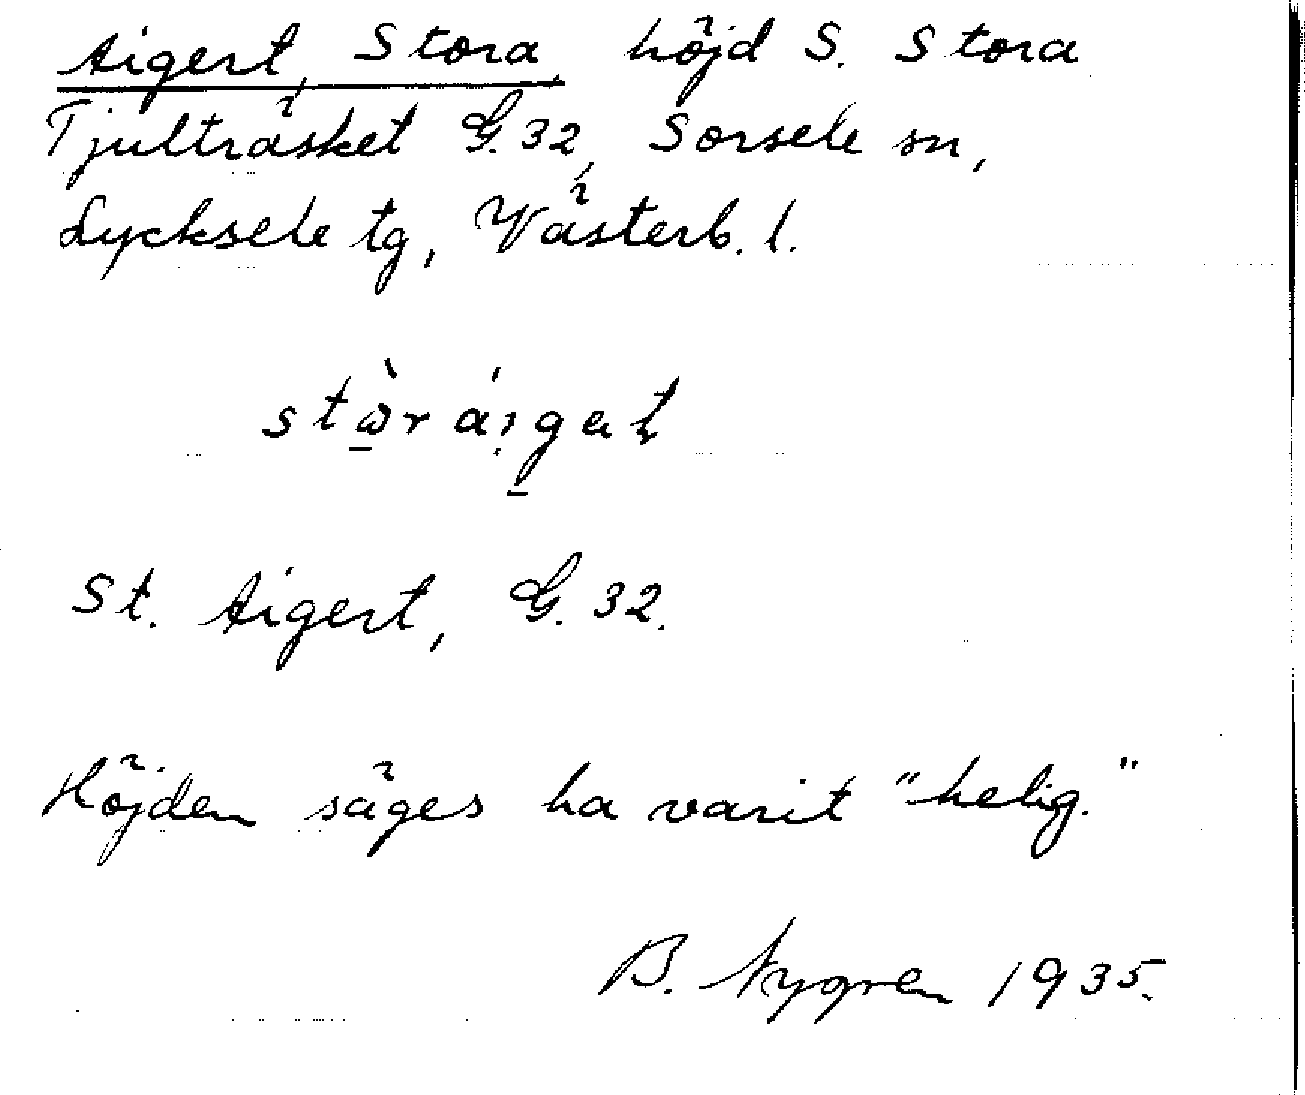 Aigert, Stora, höjd S. Stora
Tjulträsket G. 32, Sorsele sn,
Lycksele tg, Västerb. l.
St. Aigert, G. 32.
Höjden säges ha varit "helig."
B. Nygren 1935.